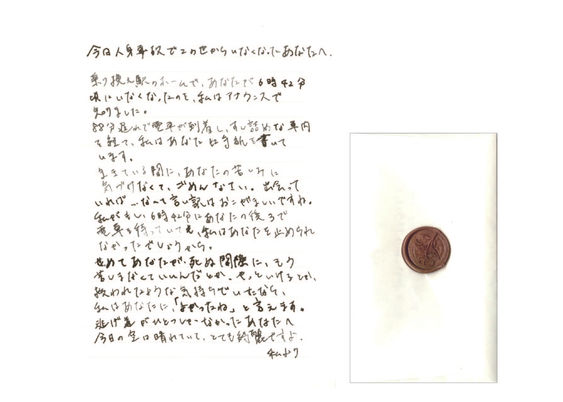 今日人身事故でこの世からいなくなったあなたへ。
乗り換え駅のホームで、あなたが6時42分
頃にいなくなったのを、私はアナウンスで
知りました。
88分遅れで電車が到着し、すし詰めな車内
で経て、私はあなたに手紙を書いて
います。
生きている間に、あなたの苦しみに
気づけなくて、ごめんなさい。出会って
いれば…なんて言い訳はおこがましいですね。
私がもし6時42分にあなたの後ろで
電車を待っていても、私はあなたを止められ
なかったでしょうから。
せめてあなたが、死ぬ間際に、もう
苦しまなくていいんだとか、やっといけるとか、
救われたような気持ちでいたなら、
私はあなたに、「よかったね」と言えます。
逃げ道がひとつしかなかったあなたへ
今日の空は晴れていて、とても綺麗ですよ。
私より